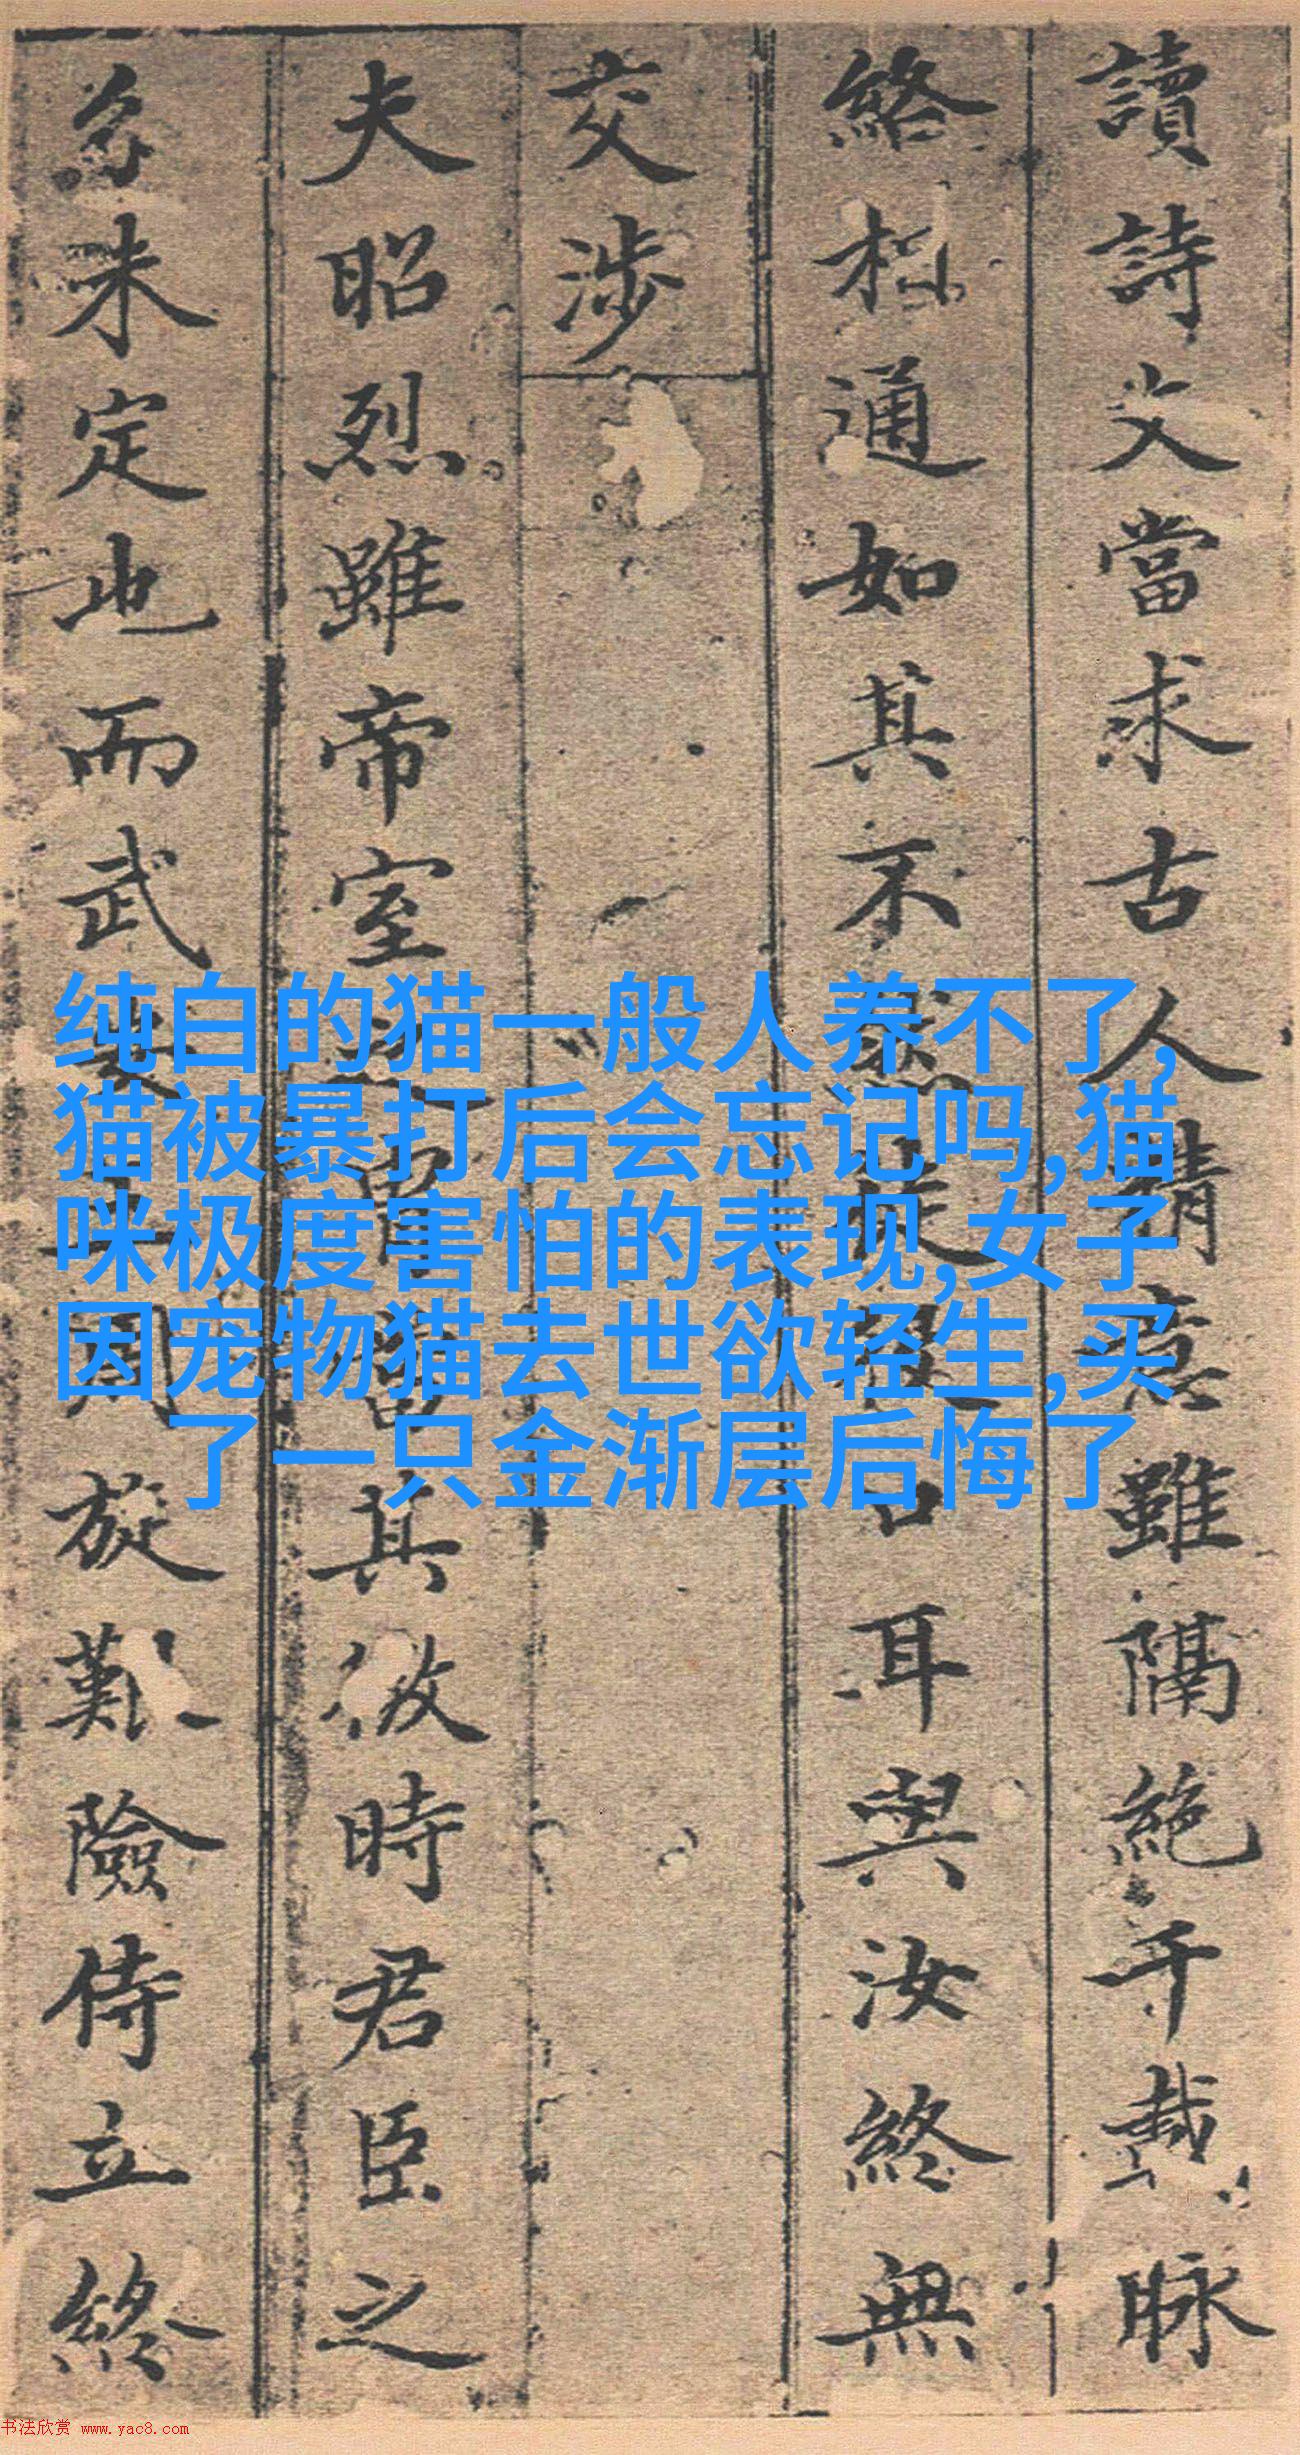 讀詩文當求古人精意雖隔絕千載脉
絡相通如其不求徒禠口耳與汝終無
交涉
夫昭烈雖帝室之冑當其微時君臣之
分未定也而武侯周旋艱險侍立終
纯白的猫一般人养不了,
猫被暴打后会忘记吗,猫
咪极度害怕的表现,女子
因宠物猫去世欲轻生,买
了一只金渐层后悔了
书法欣赏 www.yac8.com